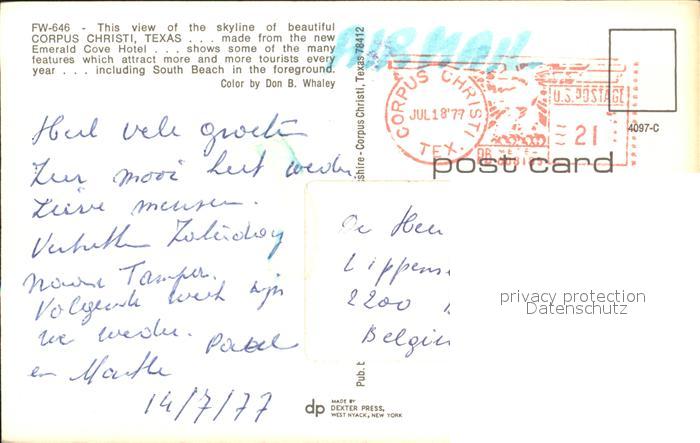 FW-646 - This view of the skyline of beautiful
CORPUS CHRISTI, TEXAS . . . made from the new
Emerald Cove Hotel . . . shows some of the many
features which attract more and more tourists every
year . . . including South Beach in the foreground.
Color by Don B. Whaley
AIR MAIL
CORPUS CHRISTI
JUL 18'77
TEX.
U.S. POSTAGE
21
4097-C
post card
Heel vele groeten
Zeer mooi heel weder
Lieve mensen.
Vertrekken Zaterdag
naar Tampa.
Volgende week zijn
we weder.
en Marthe
14/7/77
De Heer
Lippens
2200
Belgi
privacy protection
Datenschutz
shire - Corpus Christi, Texas 78412
Pub. b
dp MADE BY
DEXTER PRESS,
WEST NYACK, NEW YORK